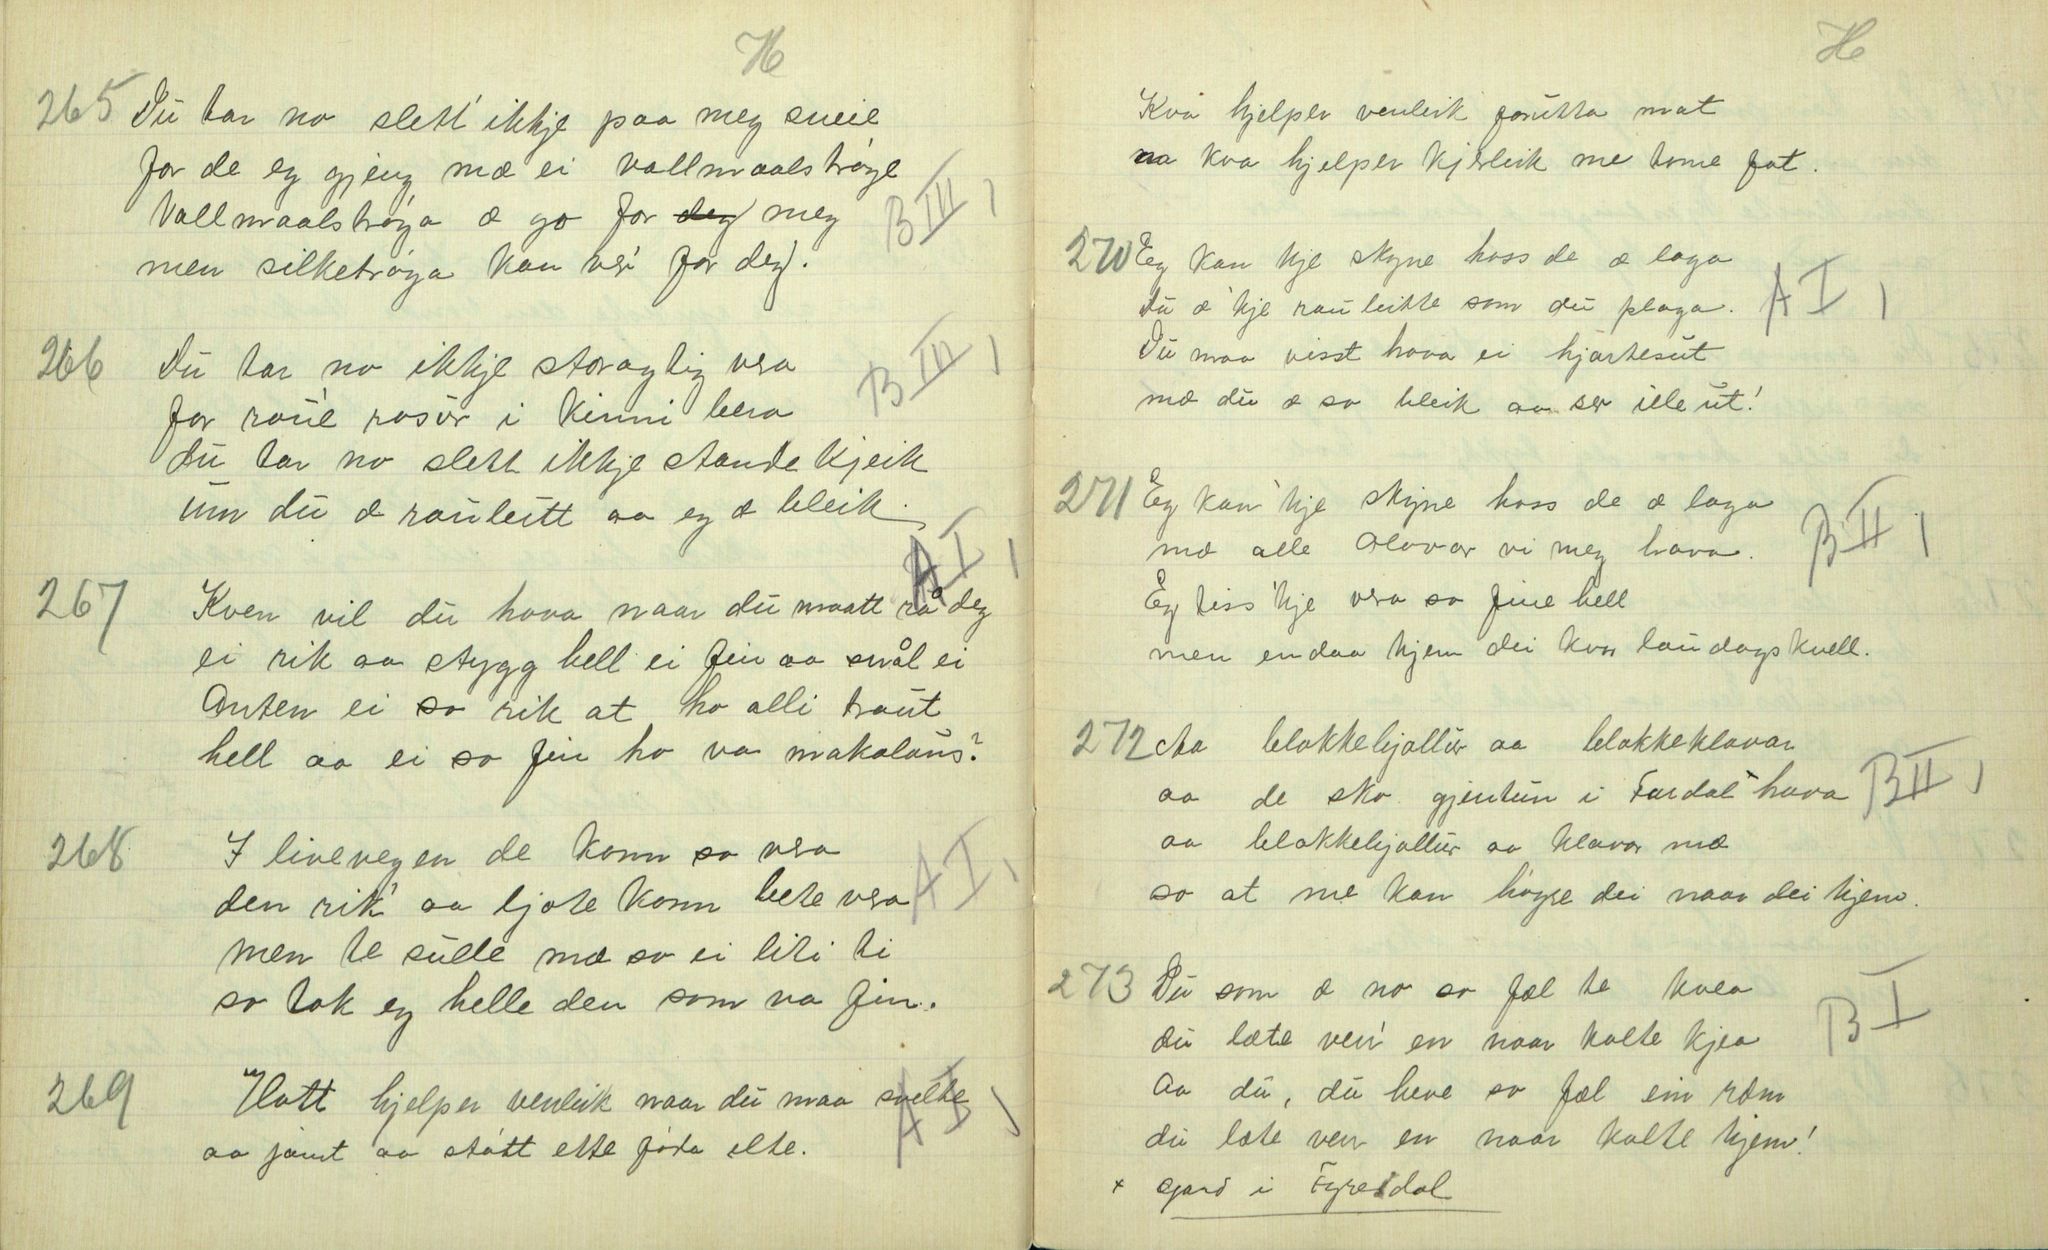 H
265 Du tar no slett' ikkje paa meg sneie
for de eg gjeng mæ ei vallmaalströye
Vallmaalströya æ go for deg meg
men silketröya kan ver' for deg.
B III 1
266 Du tar no ikkje storagtig vera
for raue rosur i kinni bera
du tar no slett ikkje stande kjeik
um du æ rauleitt aa eg æ bleik.
B III 1
267 Kven vil du hava naar du maatt rå deg
ei rik aa stygg hell ei fin aa smål ei
Anten ei so rik at ho alli traut
hell aa ei so fin ho va makalaus?
A I 1
268 I livevegen de kann so vera
den rik' aa ljote kann bete vera
men te sulle mæ so ei liti ti
so tok eg helle den som va fin.
A I 1
269 Hott hjelper venleik naar du maa svelte
aa jamt aa stött ette föda elte.
A I 1
H
Kva hjelper venleik forutta mat
aa kva hjelper kjerleik me tome fat.
270 Eg kan kje skyne hoss de æ laga
Du æ 'kje rauleitte som du plaga.
Du maa visst hava ei hjartesut
mæ du æ so bleik aa ser ille ut!
A I 1
271 Eg kan 'kje skyne hoss de æ laga
mæ alle slavar vi meg hava.
Eg tiss 'kje vera so fine hell
men endaa kjem dei kvar laudagskvell.
B II 1
272 Aa blokkebjøllur aa blokkeklavar
aa de sko gjentun i Fardal x hava
aa blokkebjøllur aa klavar mæ
so at me kan höyre dei naar dei kjem.
B II 1
273 Du som æ no so fæl te kvea
du læte ven' en naar kalte kjea
Aa du, du heve so fæl ein røm
du læte ven en naar kalte kjem!
B I
x Gard i Fyresdal